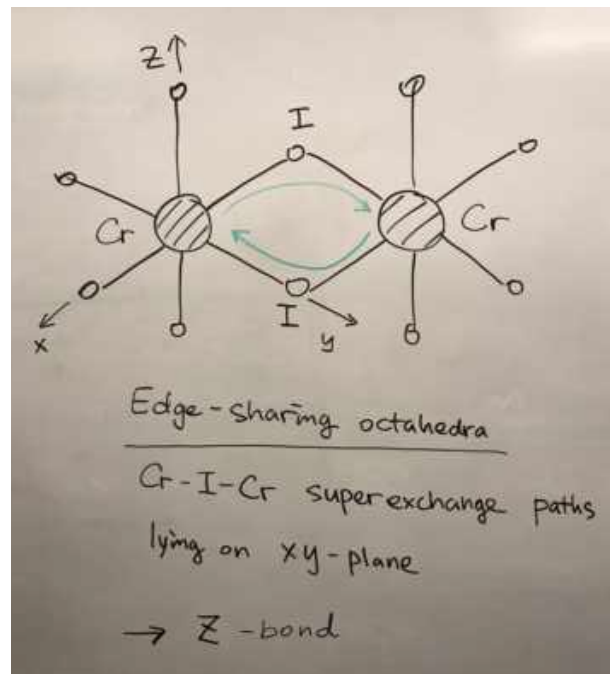 Z
I
Cr
Cr
I
x
y
Edge-sharing octahedra
Cr-I-Cr superexchange paths
lying on xy-plane
→ Z-bond